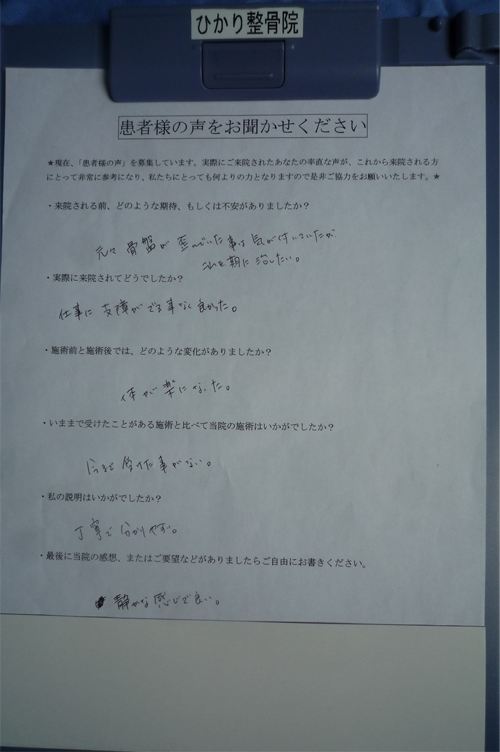 ひかり整骨院
患者様の声をお聞かせください
★現在、「患者様の声」を募集しています。実際にご来院されたあなたの率直な声が、これから来院される方
にとって非常に参考になり、私たちにとっても何よりの力となりますので是非ご協力をお願いいたします。★
・来院される前、どのような期待、もしくは不安がありましたか？
元々骨盤が歪んでいた事は気が付していたが
これを期に治したい。
・実際に来院されてどうでしたか？
仕事に支障がでる事なく良かった。
・施術前と施術後では、どのような変化がありましたか？
体が楽になった。
・いままで受けたことがある施術と比べて当院の施術はいかがでしたか？
今まで受けた事がない。
・私の説明はいかがでしたか？
丁寧で分かりやすい。
・最後に当院の感想、またはご要望などがありましたらご自由にお書きください。
静かな感じで良い。